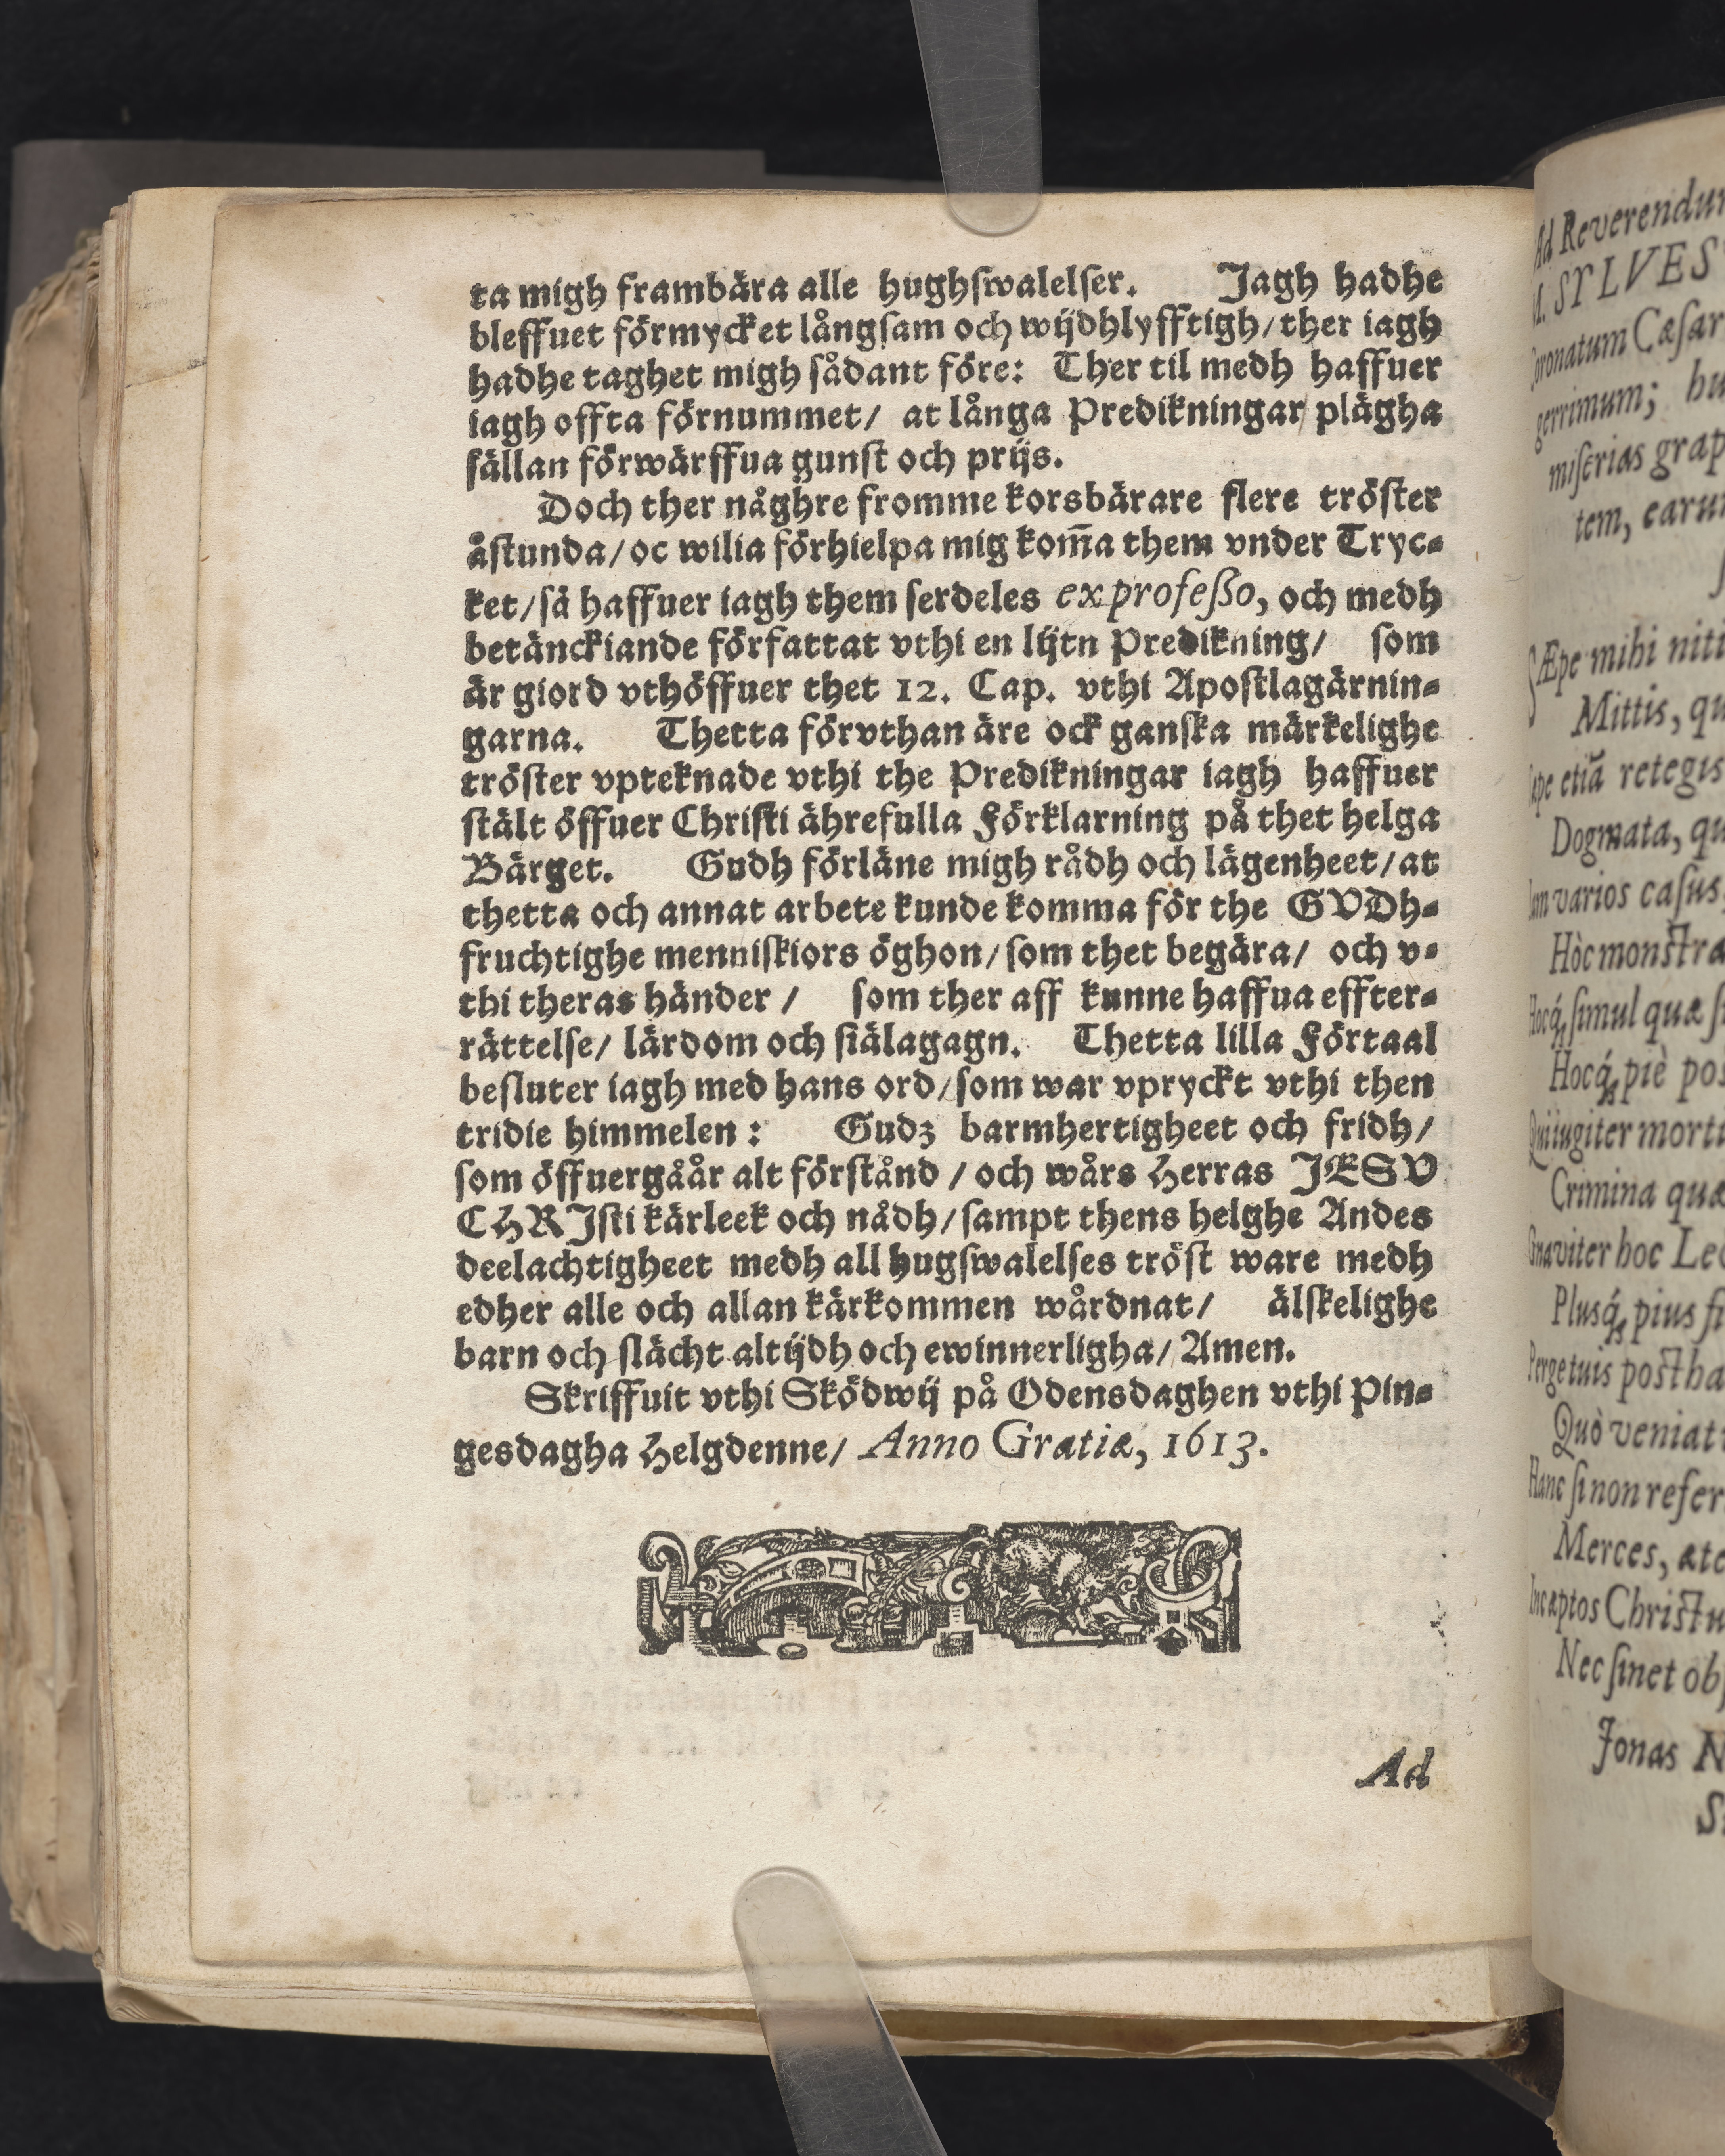 ta migh frambära alle hughſwalelſer. Jagh hadhe
bleffuet förmycket långſam och wijdhlyfftigh/ther iagh
hadhe taghet migh ſådant före: Ther til medh haffuer
iagh offta förnummet/ at långa Predikningar plägha
ſällan förwärffua gunſt och prijs.
Doch ther någhre fromme korsbärare flere tröſter
åſtunda/oc wilia förhielpa mig kom̃a them vnder Tryc⸗
ket/ſå haffuer iagh them ſerdeles ex profeßo, och medh
betänckiande författat vthi en lijtn Predikning/ ſom
är giord vthöffuer thet 12. Cap. vthi Apoſtlagärnin⸗
garna. Thetta förvthan äre ock ganſka märkelighe
tröſter vpteknade vthi the Predikningar iagh haffuer
ſtält öffuer Chriſti ährefulla Förklarning på thet helga
Bärget. Gudh förläne migh rådh och lägenheet/at
thetta och annat arbete kunde komma för the GVDh⸗
fruchtighe menniſkiors öghon/ſom thet begära/ och v⸗
thi theras händer / ſom ther aff kunne haffua effter⸗
rättelſe/ lärdom och ſiälagagn. Thetta lilla Förtaal
beſluter iagh med hans ord/ſom war vpryckt vthi then
tridie himmelen: Gudz barmhertigheet och fridh/
ſom öffuergåår alt förſtånd / och wårs Herras JESV
CHRJſti kärleek och nådh/ſampt thens helghe Andes
deelachtigheet medh all hugſwalelſes tröſt ware medh
edher alle och allan kärkommen wårdnat/ älſkelighe
barn och ſlächt altijdh och ewinnerligha/ Amen.
Skriffuit vthi Sködwij på Odensdaghen vthi Pin⸗
gesdagha Helgdenne/ Anno Gratiæ, 1613.
Ad
Ad
ST LVES
Cæſar
gerrimum; hu
miſerias
tem,
SÆpe mihi
Mittis,
etiã retegis
Dogmata,
varios caſus,
Hòc
ſimul quæ
Hocq́; piè
Crimina
hoc
Plusq́; pius
Quò veniat
ſi non
Merces,
Nec ſinet
Jonas